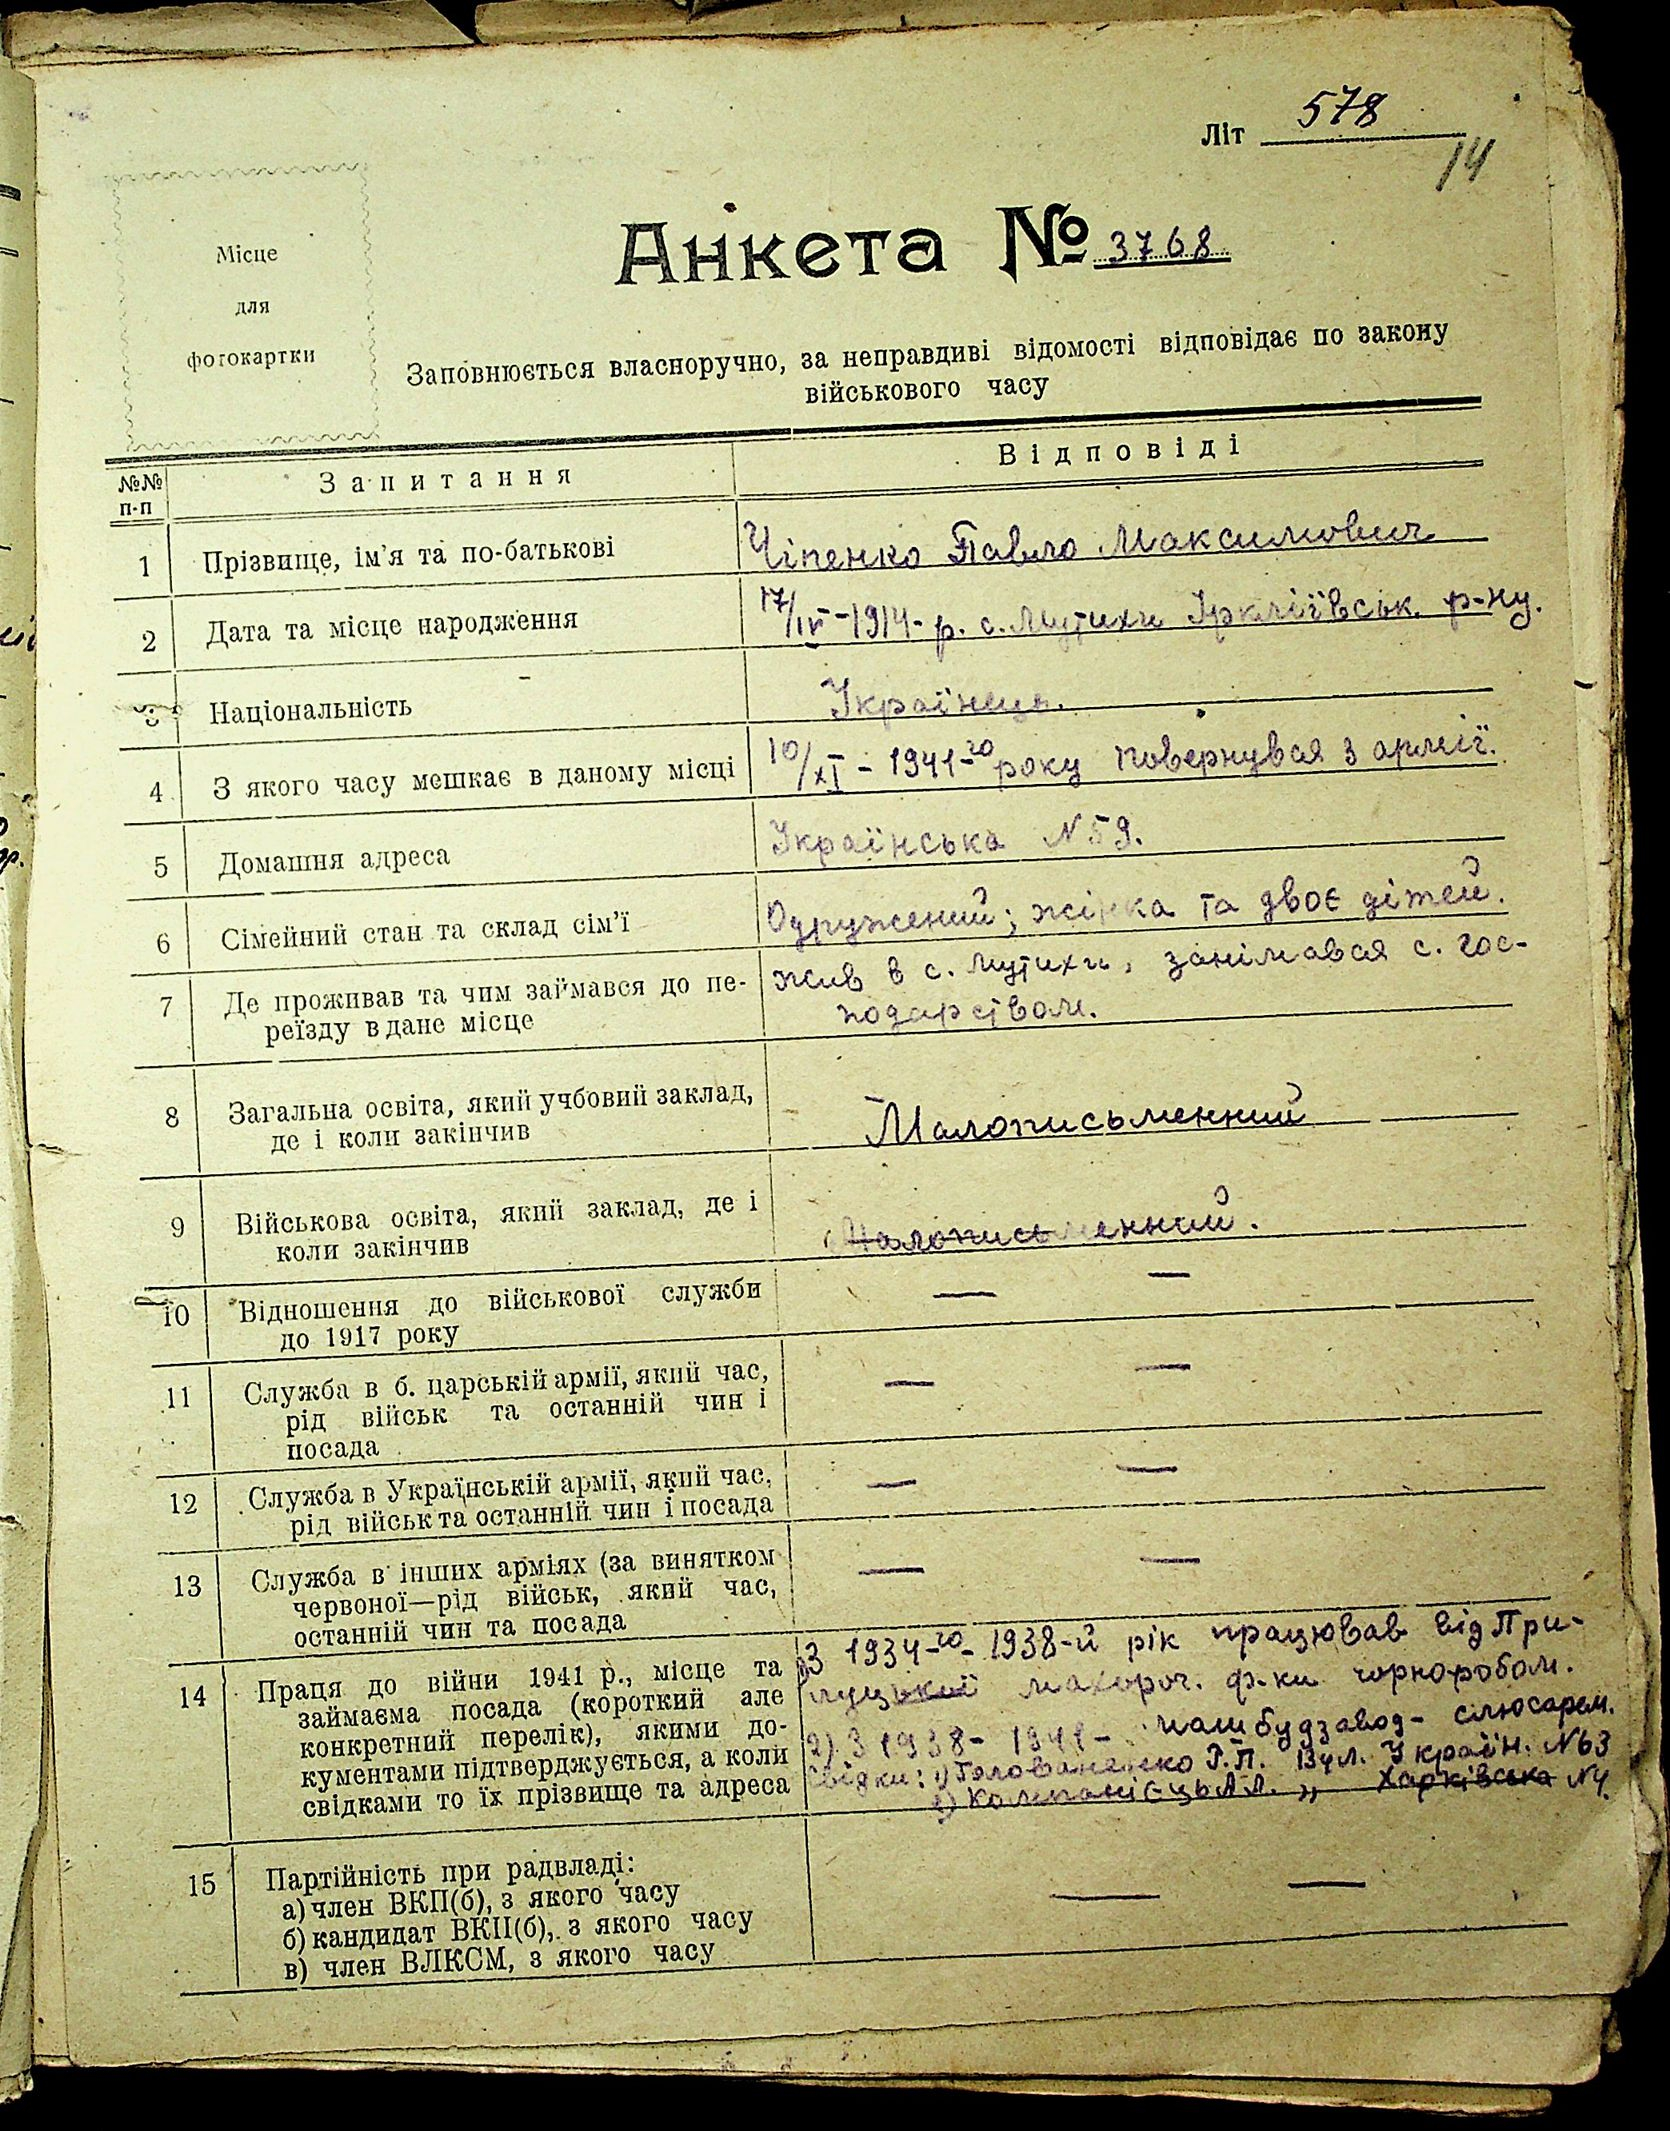 Літ 578
14
Місце
для
фотокартки
Анкета № 3768
Заповнюється власноручно, за неправдиві відомості відповідає по закону
військового часу
№№
п-п
Запитання
Відповіді
1 Прізвище, ім'я та по-батькові Чіпенко Павло Максимович
2 Дата та місце народження 17/IV-1914-р. с. Мутихи Іркліївськ. р-ну.
3 Національність Українець.
4 З якого часу мешкає в даному місці 10/XI - 1941-го року повернувся з армії.
5 Домашня адреса Українська N 59.
6 Сімейний стан та склад сім'ї Одружений; жінка та двоє дітей.
7 Де проживав та чим займався до пе- жив в с. Мутихи, занімався с. гос-
реїзду в дане місце подарством.
8 Загальна освіта, який учбовий заклад,
де і коли закінчив Малописьменний
9 Військова освіта, який заклад, де і
коли закінчив Малописьменний.
10 Відношення до військової служби — —
до 1917 року
11 Служба в б. царській армії, який час, — —
рід військ та останній чин і
посада
12 Служба в Українській армії, який час, — —
рід військ та останній чин і посада
13 Служба в інших арміях (за винятком — —
червоної—рід військ, який час,
останній чин та посада
14 Праця до війни 1941 р., місце та З 1934-го - 1938-й рік працював від При-
займаєма посада (короткий але луцької махороч. ф-ки чорноробом.
конкретний перелік), якими до- 2). З 1938 - 1941 - машбудзавод - слюсарем.
кументами підтверджується, а коли Свідки: 1) Голованенко Г.П. Вул. Україн. N63
свідками то їх прізвище та адреса 2) Компанієць А.Л. „ Харківська N4.
15 Партійність при радвладі:
а) член ВКП(б), з якого часу — —
б) кандидат ВКП(б), з якого часу
в) член ВЛКСМ, з якого часу